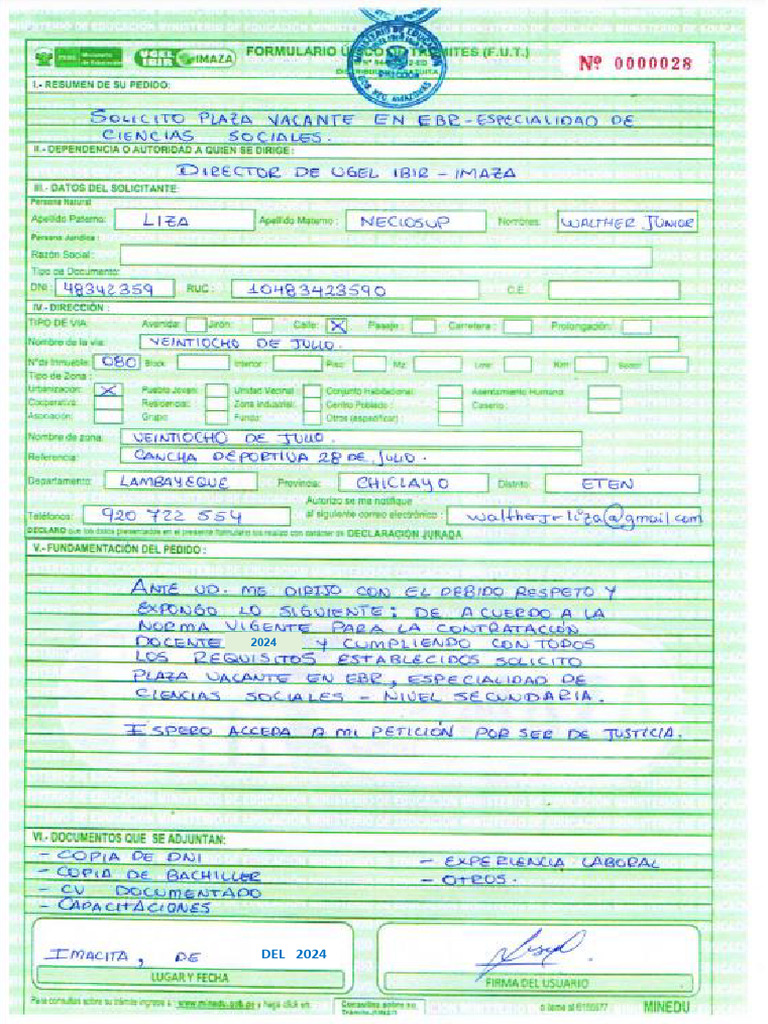 MINISTERIO DE EDUCACIÓN MINISTERIO DE EDUCACIÓN
PERÚ Ministerio de Educación UGEL IBIR IMAZA FORMULARIO ÚNICO DE TRÁMITES (F.U.T.)
DISTRIBUCIÓN GRATUITA
Nº 0000028
I.- RESUMEN DE SU PEDIDO:
SOLICITO PLAZA VACANTE EN EBR-ESPECIALIDAD DE
CIENCIAS SOCIALES.
II.- DEPENDENCIA O AUTORIDAD A QUIEN SE DIRIGE:
DIRECTOR DE UGEL IBIR - IMAZA
III.- DATOS DEL SOLICITANTE:
Persona Natural
Apellido Paterno: LIZA Apellido Materno: NECIOSUP Nombres: WALTHER JUNIOR
Persona Jurídica:
Razón Social:
Tipo de Documento:
DNI: 48342359 RUC: 10483423590 C.E.
IV.- DIRECCIÓN:
TIPO DE VIA: Avenida: Jirón: Calle: X Pasaje: Carretera: Prolongación:
Nombre de la vía: VEINTIOCHO DE JULIO.
N° de Inmueble: 080 Block: Interior: Piso: Mz: Lote: Km: Sector:
Tipo de Zona:
Urbanización: X Pueblo Joven: Unidad Vecinal: Conjunto Habitacional: Asentamiento Humano:
Cooperativa: Residencial: Zona Industrial: Centro Poblado: Caserío:
Asociación: Grupo: Fundo: Otros (especificar):
Nombre de zona: VEINTIOCHO DE JULIO.
Referencia: CANCHA DEPORTIVA 28 DE JULIO.
Departamento: LAMBAYEQUE Provincia: CHICLAYO Distrito: ETEN
Autorizo se me notifique
Teléfonos: 920 722 554 al siguiente correo electrónico: waltherjrliza@gmail.com
DECLARO que los datos presentados en el presente formulario los realizo con carácter de DECLARACIÓN JURADA
V.- FUNDAMENTACIÓN DEL PEDIDO:
ANTE UD. ME DIRIJO CON EL DEBIDO RESPETO Y
EXPONGO LO SIGUIENTE: DE ACUERDO A LA
NORMA VIGENTE PARA LA CONTRATACIÓN
DOCENTE 2024 Y CUMPLIENDO CON TODOS
LOS REQUISITOS ESTABLECIDOS SOLICITO
PLAZA VACANTE EN EBR, ESPECIALIDAD DE
CIENCIAS SOCIALES - NIVEL SECUNDARIA.
ESPERO ACCEDA A MI PETICIÓN POR SER DE JUSTICIA.
VI.- DOCUMENTOS QUE SE ADJUNTAN:
- COPIA DE DNI - EXPERIENCIA LABORAL
- COPIA DE BACHILLER - OTROS.
- CV DOCUMENTADO
- CAPACITACIONES
IMACITA, DE DEL 2024
LUGAR Y FECHA FIRMA DEL USUARIO
Para consultas sobre su trámite ingrese a www.minedu.gob.pe y haga click en: Consultas sobre su Trámite MINEDU